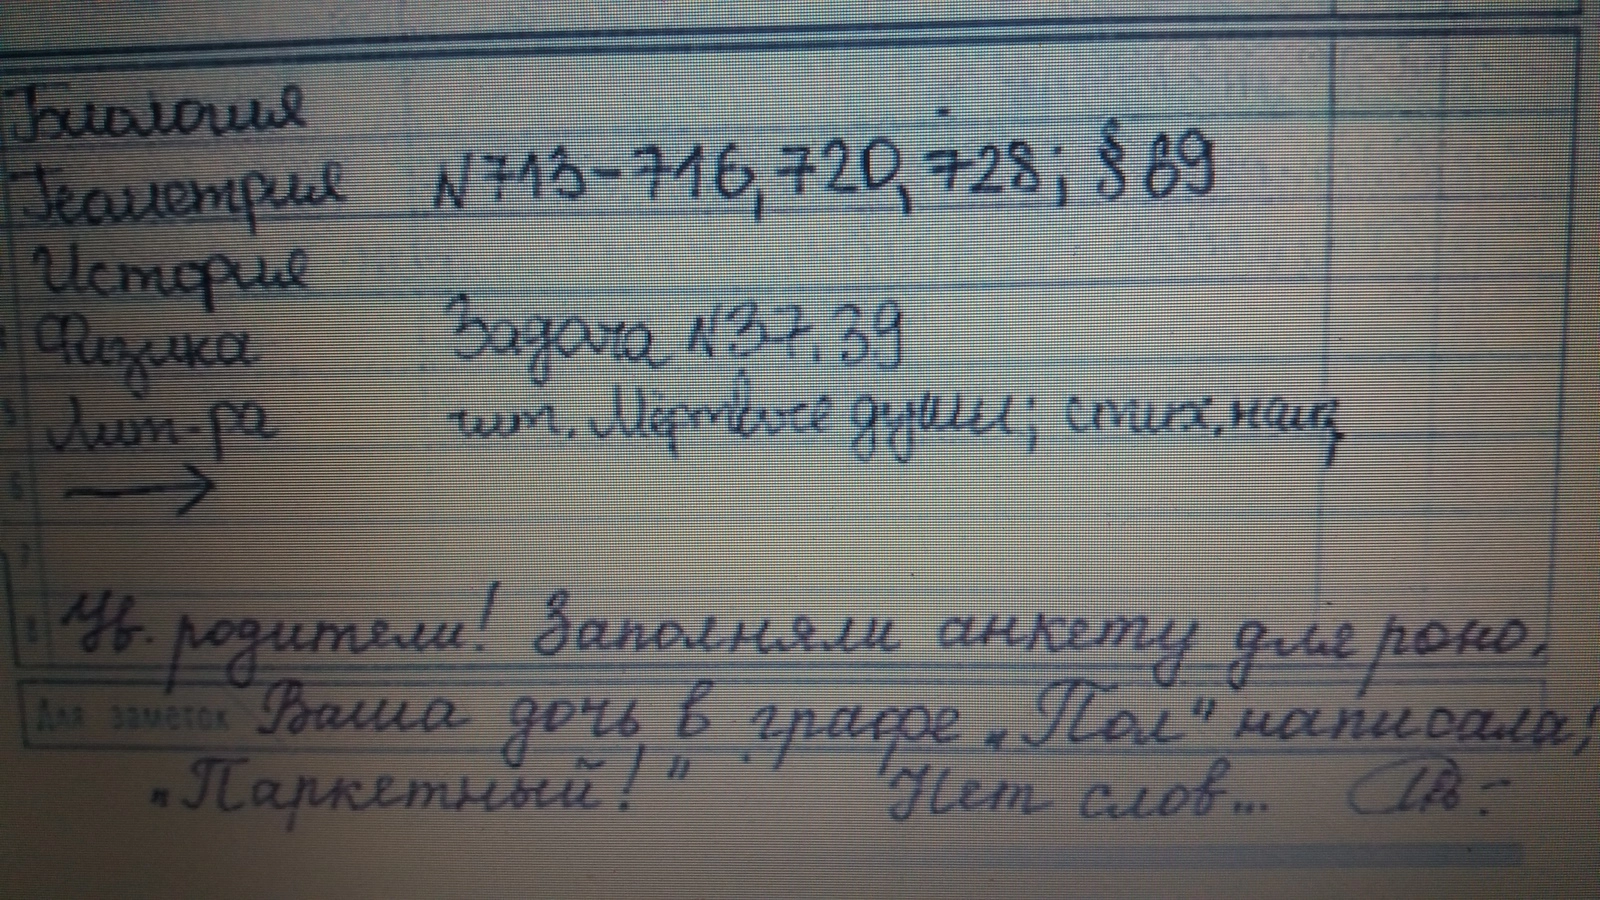 Биология
Геометрия N713-716, 720, 728; § 69
История
Физика Задача N37, 39
Лит-ра чит. Мёртвые души; стих. наиз
6 →
7
8 Ув. родители! Заполняли анкету для роно,
Для заметок Ваша дочь в графе „Пол" написала;
„Паркетный!" Нет слов...